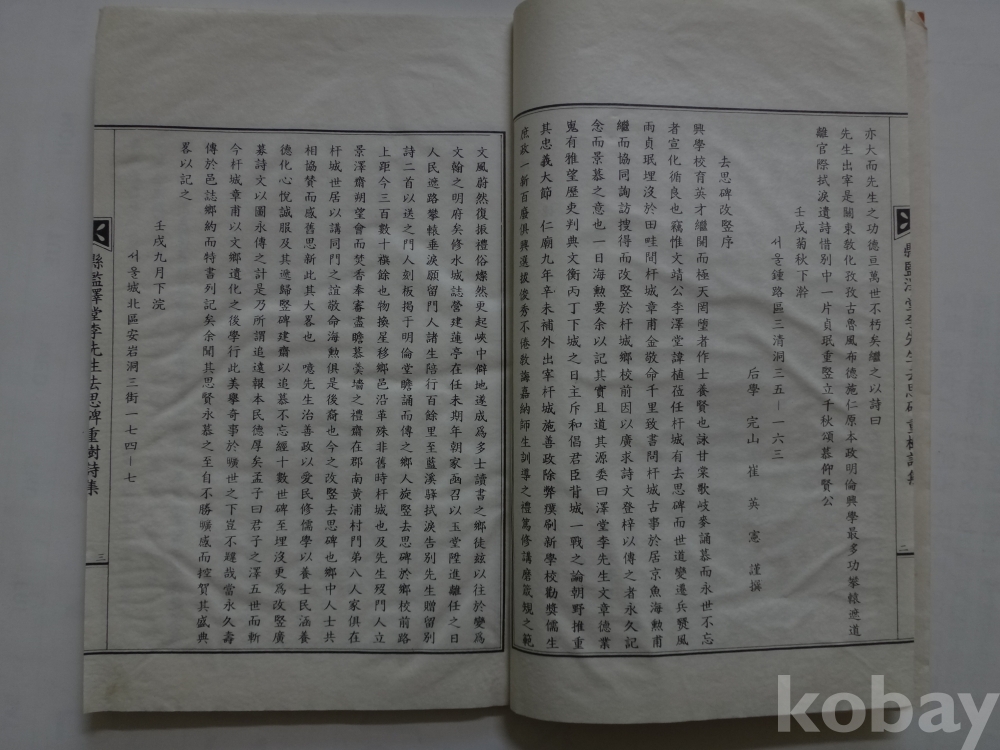 亦大而先生之功德亘萬世不朽矣繼之以詩曰
先生出宰是關東敎化孜孜古魯風布德施仁原本政明倫興學最多功攀轅遮道
離官際拭淚遺詩惜別中一片貞珉重竪立千秋頌慕仰賢公
壬戌菊秋下澣
서울鍾路區三清洞三五─一六三
后學 完山 崔英憲 謹撰
去思碑改竪序
興學校育英才繼開而極天罔墮者作士養賢也詠甘棠歌岐麥誦慕而永世不忘
者宣化循良也竊惟文靖公李澤堂諱植莅任杆城有去思碑而世道變遷兵燹風
雨貞珉埋沒於田畦問杆城章甫金敬命千里致書問杆城古事於居京魚海勲甫
繼而協同詢訪搜得而改竪於杆城鄕校前因以廣求詩文登梓以傳之者永久記
念而景慕之意也一日海勲要余以記其實且道其源委曰澤堂李先生文章德業
蒐有雅望歷吏判典文衡丙丁下城之日主斥和倡君臣背城一戰之論朝野推重
其忠義大節 仁廟九年辛未補外出宰杆城施善政除弊瘼刷新學校勸奬儒生
庶政一新百廢俱興選拔俊秀不倦敎誨嘉納師生訓導之禮篤修講磨箴規之範
文風蔚然復振禮俗燦然更起峽中僻地遂成爲多士讀書之鄕徒絃以往於變爲
文翰之明府矣修水城誌營建蓮亭在任未期年朝家亟召以玉堂陞進離任之日
人民遮路攀轅垂淚願留門人諸生陪行百餘里至藍溪驛拭淚告別先生贈留別
詩二首以送之門人刻板揭于明倫堂瞻誦而傳之鄕人旋竪去思碑於鄕校前路
上距今三百數十禩餘也物換星移鄕邑沿革殊非舊時杆城也及先生歿門人立
景澤齋朔望會而焚香奉審盡瞻慕羹墻之禮齋在郡南黄浦村門弟八人家俱在
杆城世居以講同門之誼敬命海勲俱是後裔也今之改竪去思碑也鄕中人士共
相協贊而感舊思新此其大畧也 噫先生治善政以愛民修儒學以養士民涵養
德化心悅誠服及其遞歸竪碑建齋以追慕不忘經十數世碑至埋沒更爲改竪廣
募詩文以圖永傳之計是乃所謂追遠報本民德厚矣孟子曰君子之澤五世而斬
今杆城章甫以文鄕遺化之後學行此美擧奇事於曠世之下豈不韙哉當永久壽
傳於邑誌鄕約而特書列記矣余聞其思賢永慕之至自不勝曠感而擔賀其盛典
畧以記之
壬戌九月下浣
서울城北區安岩洞三街一七四─七
縣監澤堂李先生去思碑重樹詩集
三
二
kobay